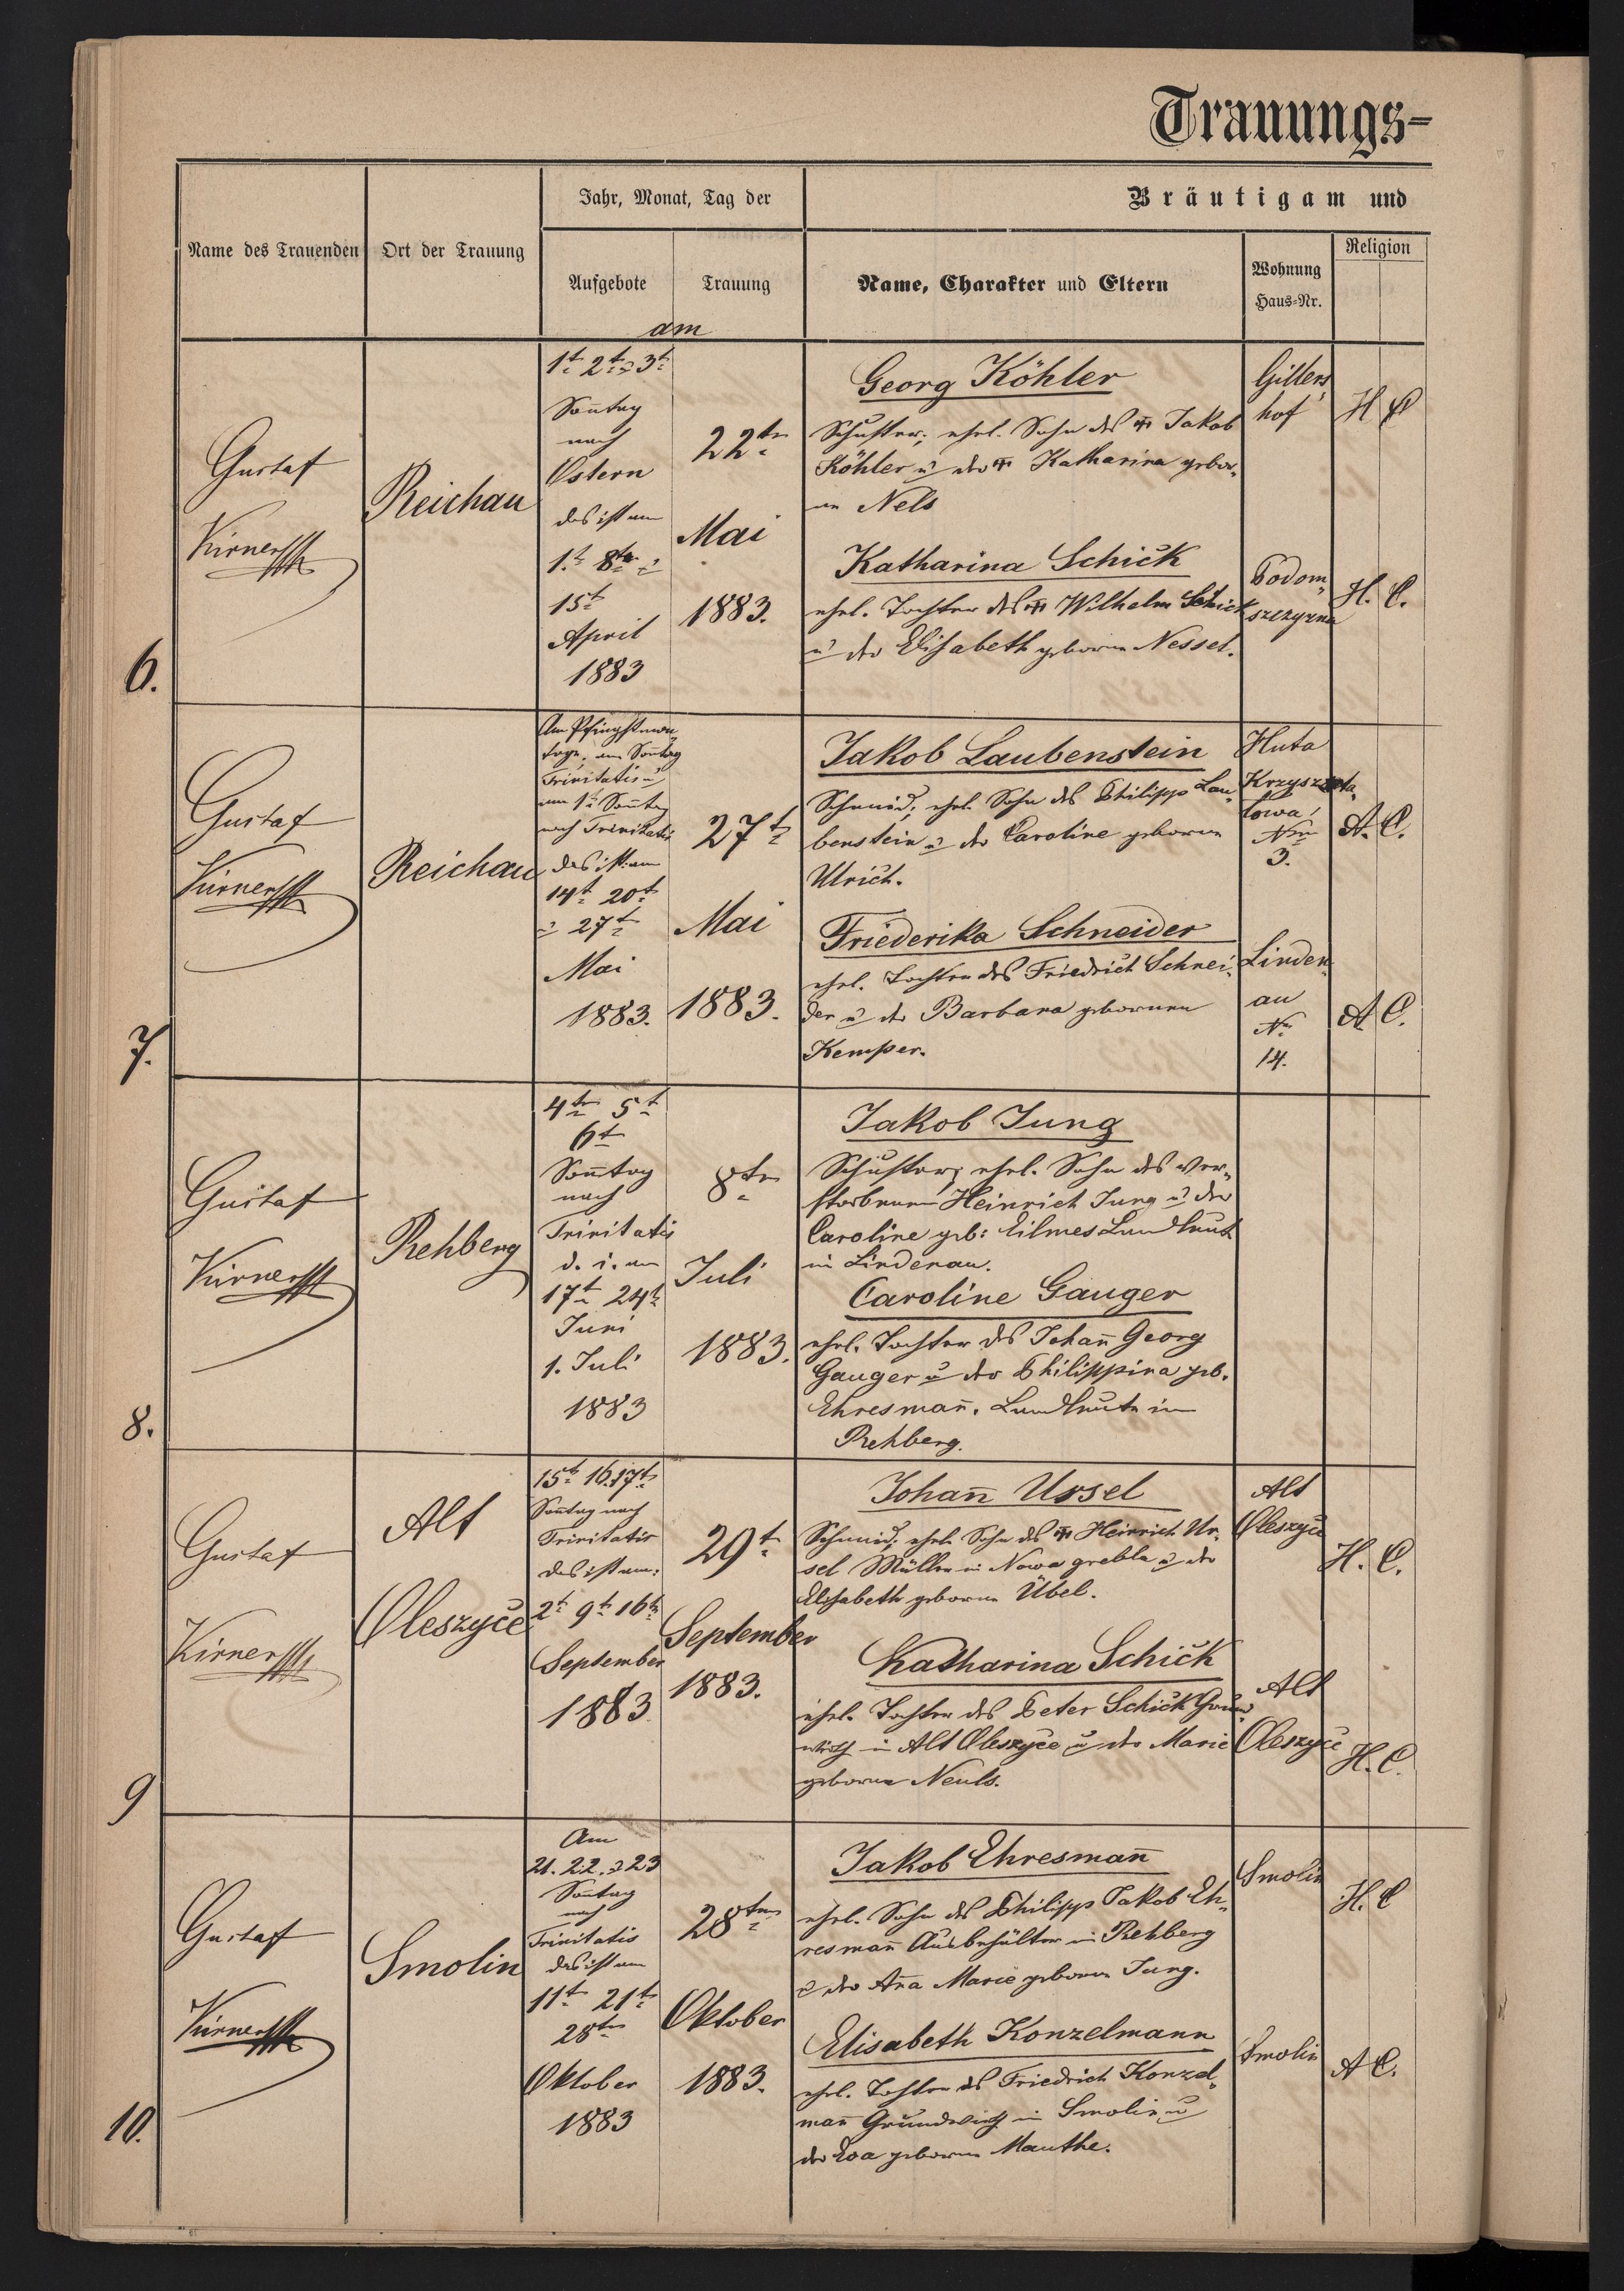 Trauungs-
Name des Trauenden
Ort der Trauung
Jahr, Monat, Tag der
Aufgebote
Trauung
am
Bräutigam und
Name, Charakter und Eltern
Wohnung
Haus-Nr.
Religion
6.
Gustaf
Kirner
Reichau
1t 2t u 3t
Sontag
nach
Ostern
das ist am
1.t 8t u
15t
April
1883
22ten
Mai
1883.
Georg Köhler
Schuster; ehel. Sohn des Jakob
Köhler u der Katharina gebor„
en Nels
Gillers„
hof
H C
Katharina Schick
ehel. Tochter des Wilhelm Schick
u der Elisabeth geboren Nessel.
Podom„
szczyzna
H. C.
7.
Gustaf
Kirner
Reichau
Am Pfingstmon„
tage, am Sontag
Trinitatis u
am 1t Sontag
nach Trinitatis
das ist am
14t 20t
u 27t
Mai
1883.
27t
Mai
1883.
Jakob Laubenstein
Schmid; ehel. Sohn des Philipp Lau„
benstein u der Caroline geboren
Ulrich.
Huta
Kryszta„
lowa
Nro
3.
A. C.
Friederika Schneider
ehel. Tochter des Friedrich Schnei„
der u der Barbara gebornen
Kemper.
Linden„
au
Nr
14.
A C.
8.
Gustaf
Kirner
Rehberg
4t 5t
6t
Sontag
nach
Trinitatis
d. i. am
17t 24t
Juni
1. Juli
1883
8ten
Juli
1883.
Jakob Jung
Schuster; ehel. Sohn des ver„
storbenen Heinrich Jung u der
Caroline geb: Eilmes Landleute
in Lindenau.
Caroline Gauger
ehel. Tochter des Johan̄ Georg
Gauger u der Philippina geb.
Ehresman̄. Landleute in
Rehberg.
9
Gustaf
Kirner
Alt
Oleszyce
15t 16. 17t
Sontag nach
Trinitatis
das ist am:
2t 9t 16t
September
1883
29t
September
1883.
Johan̄ Ursel
Schmid; ehel. Sohn des Heinrich Ur„
sel Müller in Nowa grobla u der
Elisabeth geboren Übel.
Alt
Oleszyce
H. C.
Katharina Schick
ehel. Tochter des Peter Schick Grund„
wirth in Alt Oleszyce u der Marie
geboren Neuls.
Alt
Oleszyce
H. C.
10.
Gustaf
Kirner
Smolin
Am
21. 22. u 23
Sontag
nach
Trinitatis
das ist am
11t 21t
28t
Oktober
1883
28ten
Oktober
1883.
Jakob Ehresman̄
ehel. Sohn des Philipp Jakob Eh„
resman̄ Ausbehälter in Rehberg
u der Ana Marie geboren Jung.
Smolin
H. C
Elisabeth Konzelmann
ehel. Tochter des Friedrich Konzel„
man̄ Grundwirth in Smolin u
der Eva geboren Mauthe.
Smolin
A C.